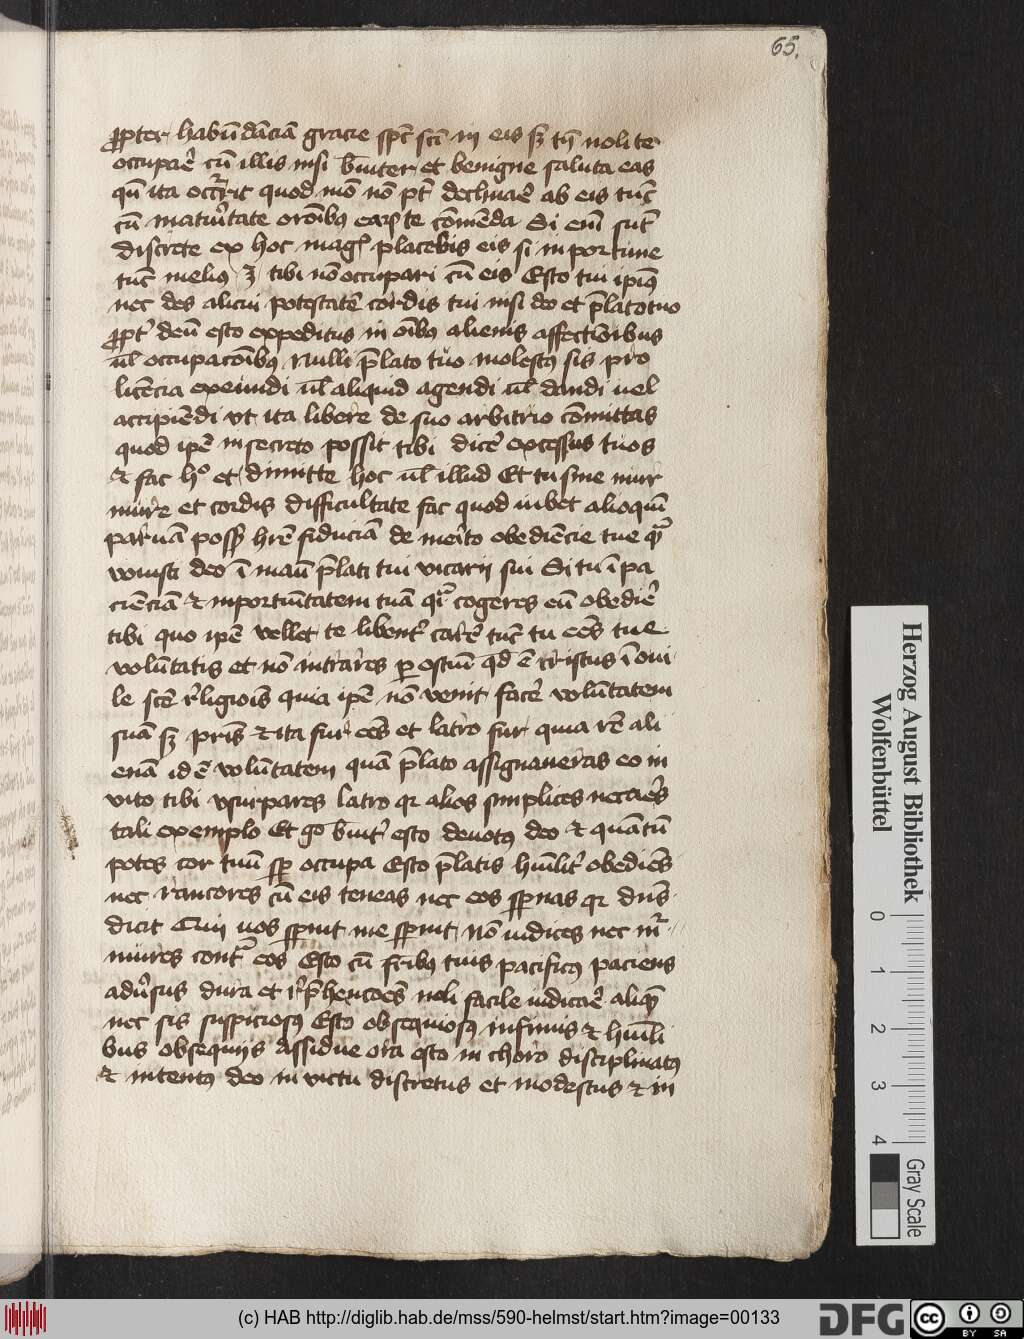 65.
ꝓpter habūdāciā gracie spc̄ sc̄i in eis sꝫ tn̄ noli te
occupar̄e cū illis nisi br̄uiter et benigne saluta eas
qn̄ ita occr̄rit quod mō nō pt̄ declinar̄e ab eis tūc
cū matur̄itate orōibꝰ earꝫ te cōmēda Si em̄ sūt
discrete ex hoc magꝭ placebis eis si inportune
tūc melius ꝫ tibi nō occupari cū eis Esto tui ipiꝰ
nec des alicui potestatē cordis tui nisi deo et p̄lato tuo
ꝓpt̄ deū esto expeditus in oībꝰ alienis affectionibus
ul̄ occupacōibꝰ Nulli p̄lato tuo molestꝰ sis pro
licēcia exeundi ul̄ aliquid agendi ul̄ dandi uel
accipiēdi vt ita libere de suo arbitrio cōmittas
quod ipē in secreto possit tibi dicē excessus tuos
⁊ fac hº et dimitte hoc ul̄ illud Et tu sine mur
mure et cordis difficultate fac quod iubet alioquī
paruā possꝫ hr̄e fiduciā de merito obediēcie tue qᵃ
vouisti deo ī manꝰ p̄lati tui vicarii sui Si tu ī pa
ciēciā ⁊ inportūitatem tuā qᵃ̄ cogeres eū obedir̄e
tibi quo ipē vellet te libent̄ car̄e tūc tu eēs tue
volūtatis et nō intrares ꝑ ostiū qd̄ ē cristus ī oui
le scē r̄ligiois quia ipē nō venit facē volūtatem
suā sꝫ pris̄ ⁊ ita fur eēs et latro fur quia rē ali
enā id ē volūtatem quā p̄lato assignaueras eo in
uito tibi vsurpares latro qꝛ alios simplices necaēs
tali exemplo Et go br̄uit̄ esto deuotꝰ deo ⁊ quātū
potes cor tuū sp̄ occupa Esto p̄latis hūilit̄ obediēs
nec rancores cū eis teneas nec eos spernas qꝛ dn̄s
dicit Qui uos spernit me spernit nō iudices nec mᵘr
mures contᵃ eos Esto cū fr̄ibꝰ tuis pacificꝰ paciens
aduꝰsus dura et r̄p̄hencōes noli facile iudicar̄e aliqꝫ
nec sis suspiciosꝰ Esto obsequiosꝰ infirmis ⁊ hūili
bus obsequiis Assidue ora esto in choro disciplinatꝰ
⁊ intentꝰ deo in victu discretus et modestus ⁊ in
Herzog August Bibliothek
Wolfenbüttel
0 1 2 3 4
Gray Scale
(c) HAB http://diglib.hab.de/mss/590-helmst/start.htm?image=00133
DFG
cc BY SA